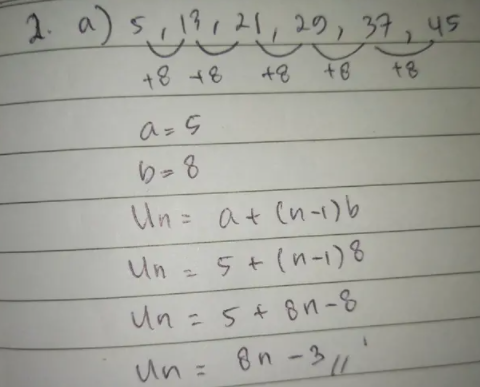 2. a) 5, 13, 21, 29, 37, 45
+8 +8 +8 +8 +8
a = 5
b = 8
Un = a + (n-1)b
Un = 5 + (n-1)8
Un = 5 + 8n-8
Un = 8n - 3 //